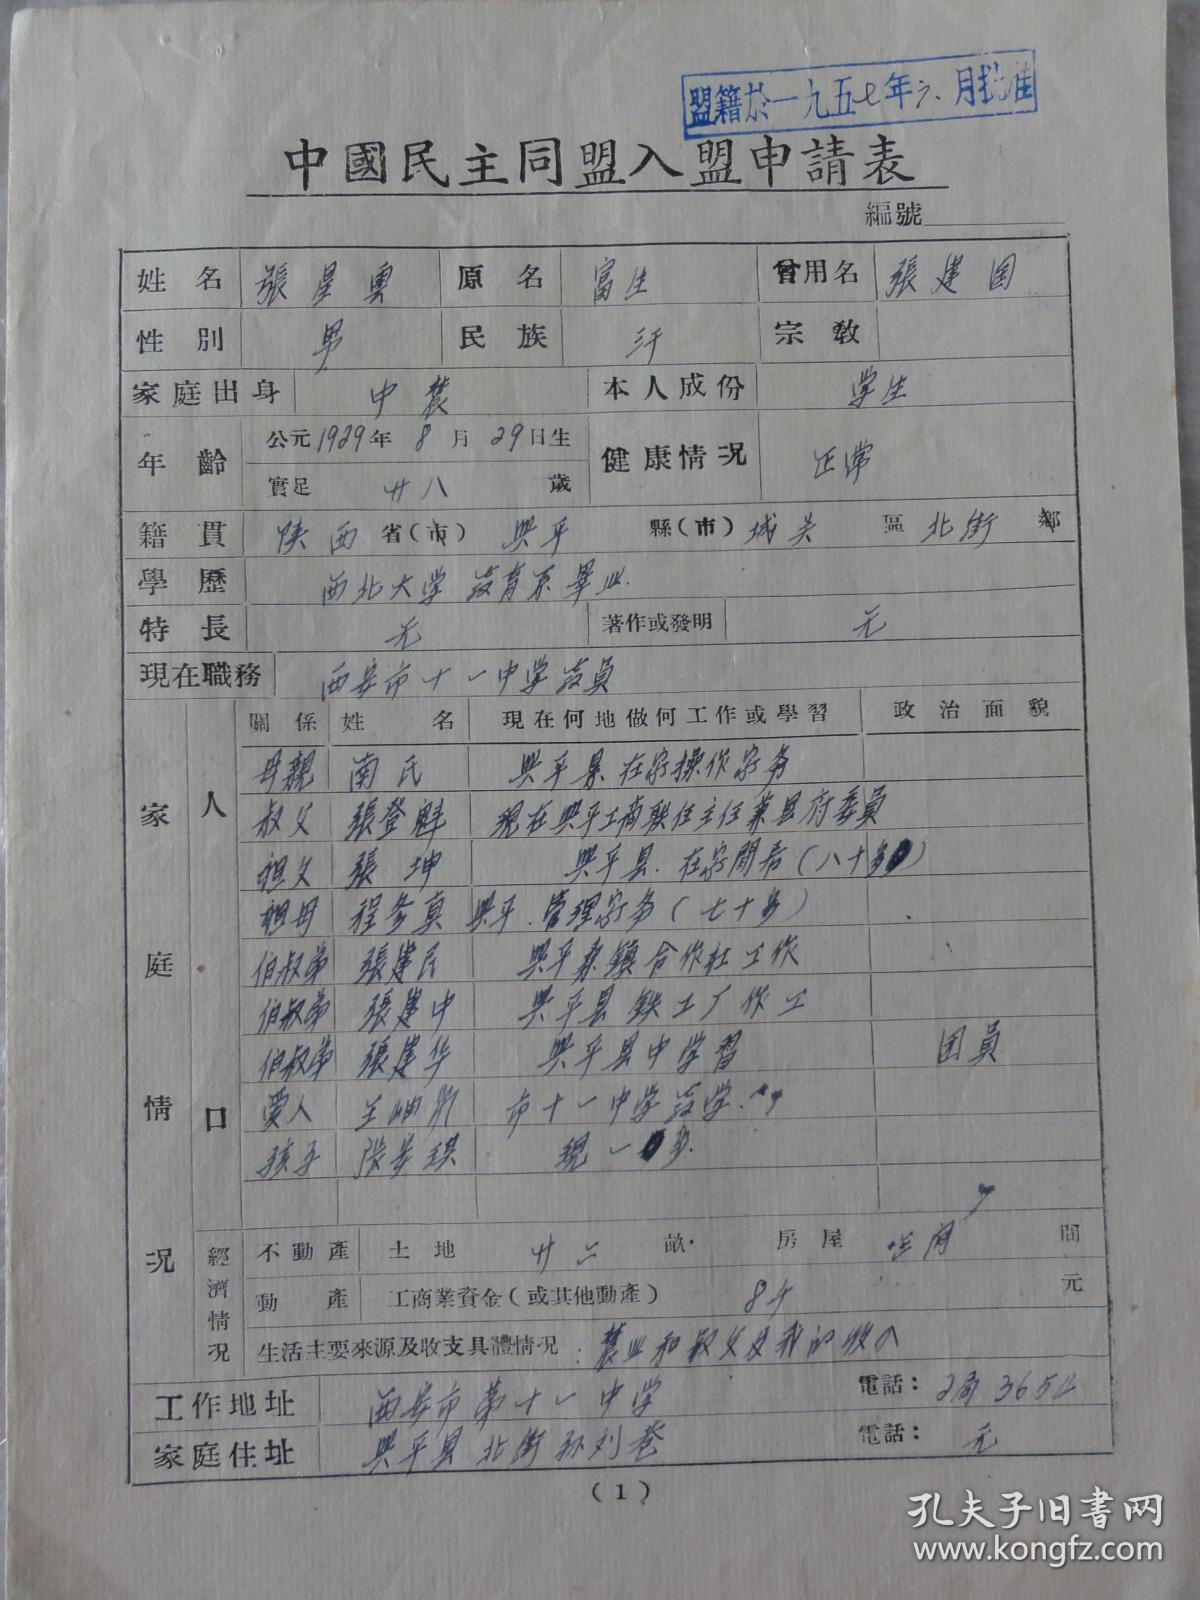 盟籍於一九五七年六月批准
中國民主同盟入盟申請表
編號
姓名 張星雲 原名 富生 曾用名 張建国
性別 男 民族 汗 宗教
家庭出身 中農 本人成份 学生
年齡 公元1929年8月29日生 健康情況 正常
實足 廿八 歲
籍貫 陕西 省(市) 興平 縣(市) 城关 區 北街 鄉
學歷 西北大学教育系畢业.
特長 无 著作或發明 无
現在職務 西安市十一中学教員
家庭情況 人口 關係 姓名 現在何地做何工作或學習 政治面貌
母親 南氏 興平县在家操作家务
叔父 張登魁 現在興平工商联任主任兼县府委員
祖父 張坤 興平县.在家閒居(八十多)
祖母 程 真 興平.管理家务(七十多)
伯叔弟 張建民 興平桑鎮合作社工作
伯叔弟 張建中 興平县鉄工厂作工
伯叔弟 張建华 興平县中学習 团員
愛人 王 市十一中学教学.
孩子 張 琪 現一岁.
經濟情況 不動產 土地 廿 畝. 房屋 間
動產 工商業資金(或其他動產) 8千 元
生活主要來源及收支具體情況: 農业和叔父及我的收入
工作地址 西安市第十一中学 電話: 2局365
家庭住址 興平县北街孙刘巷 電話: 无
(1)
孔夫子旧书网
www.kongfz.com